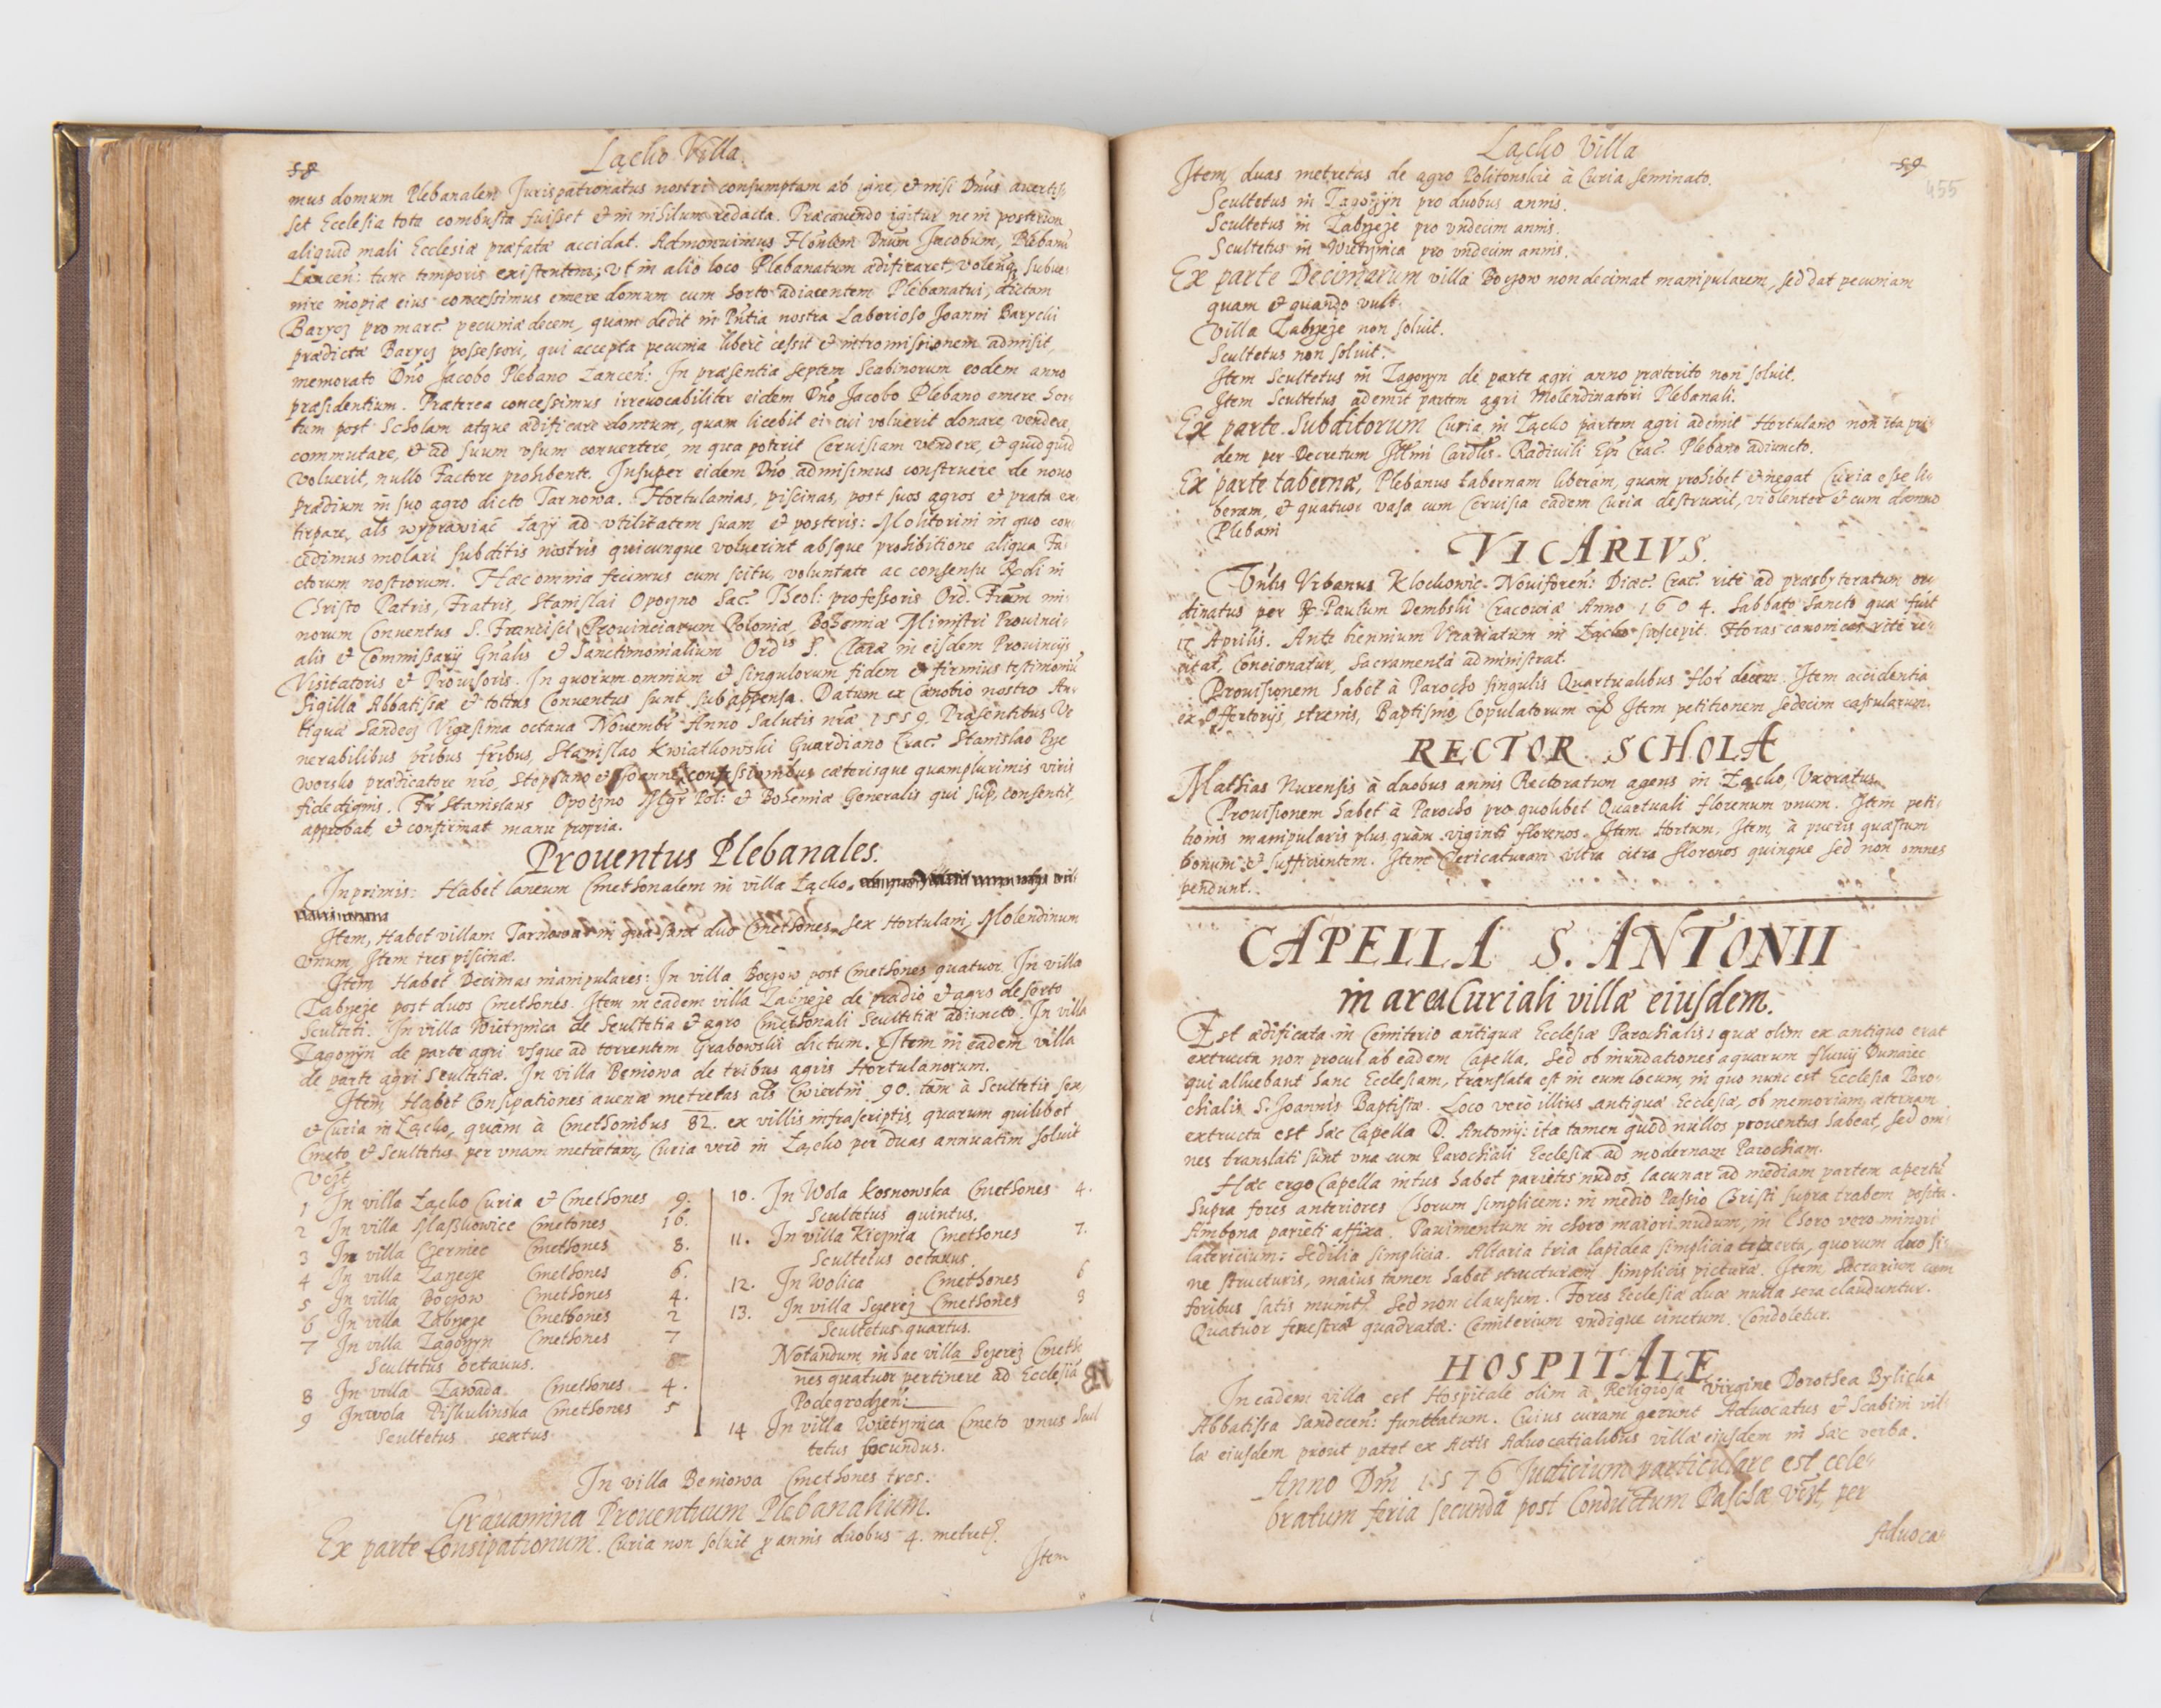 58
Łącko Villa.
mus domum Plebanalem Jurispatronatus nostri consumptam ab igne, et nisi Dnus avertis:
set Ecclesia tota combusta fuisset et in nihilum redacta. Præcavendo igitur ne in posterum
aliquid mali Ecclesiæ præfatæ accidat. Admonuimus Honlem Dnum Jacobum, Plebanū
Lancen: tunc temporis existentem; ut in alio loco Plebanatum ædificaret, volentes subve:
nire inopiæ eius concessimus emere domum cum horto adiacentem Plebanatui, dictam
Barycz pro marc. pecuniæ decem, quam dedit in Pntia nostra Laborioso Joanni Barychi
prædictæ Barycz possessori, qui accepta pecunia liberè cessit et intromissionem admisit,
memorato Dno Jacobo Plebano Lancen: In præsentia septem Scabinorum eodem anno
præsidentium. Præterea concessimus irrevocabiliter eidem Dno Jacobo Plebano emere hor:
tum post Scholam atque ædificare domum, quam licebit ei cui voluerit donare, vendere,
commutare, et ad suum usum convertere, in qua poterit Cervisiam vendere, et quidquid
voluerit, nullo Factore prohibente. Insuper eidem Dno admisimus construere de novo
prædium in suo agro dicto Tarnowa. Hortulanias, piscinas, post suos agros et prata ex:
tirpare, als wyprawiać Łazy ad utilitatem suam et posteris: Molitorim in quo con:
cedimus molari subditis nostris quicunque voluerint absque prohibitione aliqua Fa:
ctorum nostrorum. Hæc omnia fecimus cum scitu, voluntate ac consensu Rndi in
Christo Patris, Fratris, Stanislai Opoczno Sac. Theol: professoris Ord. Frum mi:
norum Conventus S. Francisci Provinciarum Poloniæ, Bohemiæ Ministri Provinci:
alis et Commissarij Gnalis et Sanctimonialium Ordis S. Claræ in eisdem Provincijs
Visitatoris et Provisoris. In quorum omnium et singulorum fidem et firmius testimoniū
Sigilla Abbatissæ et totius Conventus sunt subappensa. Datum ex Cænobio nostro An:
tiquæ Sandecz Vigesima octava Novembr. Anno Salutis nræ 1559. Præsentibus Ve
nerabilibus pribus fribus, Stanislao Kwiatkowski Guardiano Crac. Stanislao Pye
worsko prædicatore nro, Stephano et Joanne confessionibus cæterisque quamplurimis viris
fide dignis. Fr Stanislaus Opoczno Mgr Pol: et Bohemiæ Generalis qui sup, consentit,
approbat, et confirmat manu propria.
Proventus Plebanales.
Inprimis: Habet laneum Cmethonalem in villa Łącko.
Item, Habet villam Tarnowa in qua sunt duo Cmethones. Sex Hortulani, Molendinum
unum, Item tres piscinæ.
Item Habet Decimas manipulares: In villa Boczow post Cmethones quatuor. In villa
Zabrzeże post duos Cmethones. Item in eadem villa Zabrzeże de prædio et agro deserto
Sculteti. In villa Wietrznica de Scultetia et agro Cmethonali Scultetiæ adiuncto. In villa
Zagorzyn de parte agri usque ad torrentem Grabowski dictum. Item in eadem villa
de parte agri Scultetiæ. In villa Beniowa de tribus agris Hortulanorum.
Item Habet Consipationes avenæ metretas als Cwiertni 90. tam à Scultetis sex,
et Curia in Łącko, quàm à Cmethonibus 82. ex villis infrascriptis, quarum quilibet
Cmeto et Scultetus per unam metretam, Curia verò in Łącko per duas annuatim solvit
Vczt
1 In villa Łącko Curia et Cmethones 9.
2 In villa Maszkowice Cmetones 16.
3 In villa Czerniec Cmethones 8.
4 In villa Zarzecze Cmethones 6.
5 In villa Boczow Cmethones 4.
6 In villa Zabrzeże Cmethones 2
7 In villa Zagorzyn Cmethones 7
Scultetus octavus. 8.
8 In villa Zawada Cmethones 4.
9 In Wola Piskulinska Cmethones 5
Scultetus sextus
10. In Wola Kosnowska Cmethones 4.
Scultetus quintus.
11. In villa Kicznia Cmethones 7.
Scultetus octavus.
12. In Wolica Cmethones 6
13. In villa Sczerez Cmethones 8
Scultetus quartus.
Notandum in hac villa Sczerez Cmetho
nes quatuor pertinere ad Ecclesiā
Podegrodzen:
14 In villa Wietrznica Cmeto unus Scul
tetus secundus.
In villa Beniowa Cmethones tres.
Gravamina Proventuum Plebanalium.
Ex parte Consipationum. Curia non solvit p annis duobus 4. metret.
Item
Łącko Villa
59
455
Item, duas metretas de agro Politonskie à Curia seminato.
Scultetus in Zagorzyn pro duobus annis.
Scultetus in Zabrzeże pro undecim annis.
Scultetus in Wietrznica pro undecim annis.
Ex parte Decimarum villa Boczow non decimat manipularem, sed dat pecuniam
quam et quando vult.
Villa Zabrzeże non solvit.
Scultetus non solvit.
Item Scultetus in Zagorzyn de parte agri anno præterito non solvit.
Item Scultetus ademit partem agri Molendinatori Plebanali.
Ex parte Subditorum Curia in Łącko partem agri ademit Hortulano non ita pri:
dem per Decretum Illmi Cardlis Radivili Epi Crac. Plebano adiuncto.
Ex parte tabernæ, Plebanus tabernam liberam, quam prohibet et negat Curia esse li:
beram, et quatuor vasa cum Cervisia eadem Curia destruxit, violenter et cum damno
Plebani
VICARIVS.
Honlis Vrbanus Klockowic Noviforen: Diæc. Crac. ritè ad præsbyteratum or:
dinatus per R. Paulum Dembski Cracoviæ Anno 1604. Sabbato Sancto quæ fuit
17 Aprilis. Ante biennium Vicariatum in Łącko suscepit. Horas canonicas ritè re:
citat, Concionatur, Sacramenta administrat.
Provisionem habet à Parocho singulis Quartualibus flor decem. Item accidentia
ex Offertorijs, strenis, Baptismo, Copulatorum Item petitionem sedecim casularum.
RECTOR SCHOLÆ
Mathias Nurensis à duobus annis Rectoratum agens in Łącko, Uxoratus.
Provisionem habet à Parocho pro quolibet Quartuali florenum unum. Item peti:
tionis manipularis plus quàm viginti florenos. Item Hortum. Item, à pueris quæstum
bonum et sufficientem. Item Clericaturam ultra citra florenos quinque sed non omnes
pendunt.
CAPELLA S. ANTONII
in area Curiali villæ eiusdem.
Est ædificata in Cemiterio antiquæ Ecclesiæ Parochialis: quæ olim ex antiquo erat
extructa non procul ab eadem Capella. Sed ob inundationes aquarum fluvij Dunaiec
qui alluebant hanc Ecclesiam, translata est in eum locum, in quo nunc est Ecclesia Paro:
chialis S. Joannis Baptistæ. Loco verò illius antiquæ Ecclesiæ, ob memoriam æternam
extructa est hæc Capella D. Antonij: ita tamen quòd nullos proventus habeat, sed om:
nes translati sunt una cum Parochiali Ecclesia ad modernam Parochiam.
Hæc ergo Capella intus habet parietes nudos, lacunar ad mediam partem apertū
Supra fores anteriores Chorum simplicem: in medio Passio Christi supra trabem posita.
Ambona parieti affixa. Pavimentum in choro maiori nudum, in Choro vero minori
latericium: Sedilia simplicia. Altaria tria lapidea simplicia tecta, quorum duo si:
ne structuris, maius tamen habet structuram simplicis picturæ. Item, Sacrarium cum
foribus satis munit. Sed non clausum. Fores Ecclesiæ duæ nulla sera clauduntur.
Quatuor fenestræ quadratæ: Cemiterium undique cinctum. Condoletur.
HOSPITALE
In eadem villa est Hospitale olim à Religiosa Virgine Dorothea Bylicka
Abbatissa Sandecen: fundatum. Cuius curam gerunt Advocatus et Scabini vil:
læ eiusdem prout patet ex Actis Advocatialibus villæ eiusdem in hæc verba.
Anno Dni 1576 Judicium particulare est cele:
bratum feria secunda post Conductum Paschæ vczt, per
Advoca: